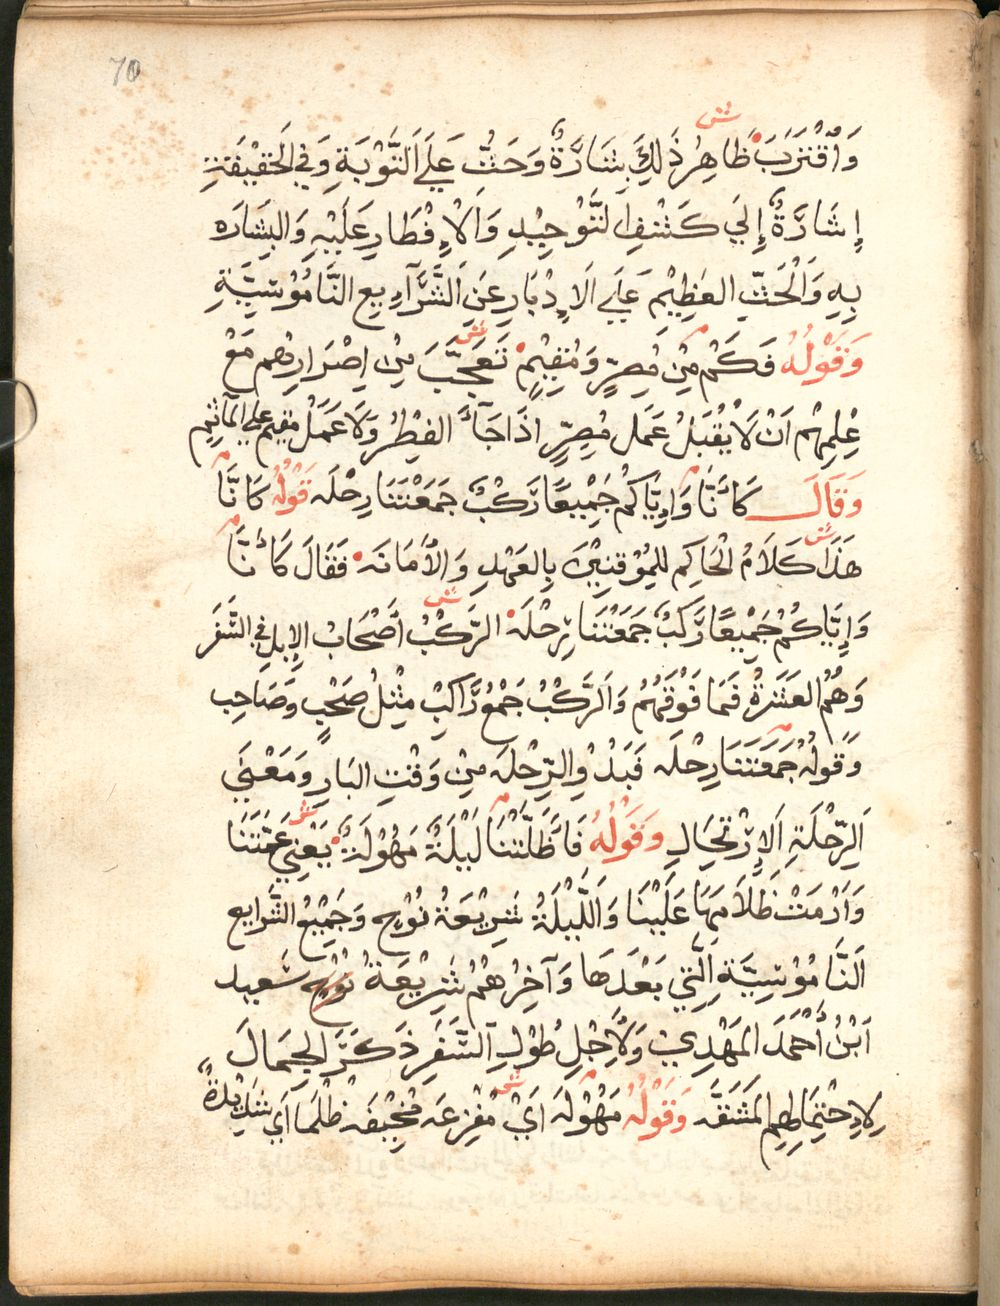 70
ش
وَاقْتَرَبَ ظَاهِرُ ذَلِكَ بِشَارَةٌ وَحَثٌّ عَلَى التَّوْبَةِ وَفِي الحَقِيْقَةِ
إِشَارَةٌ إِلَى كَشْفِ التَّوْحِيْدِ وَالْإِفْطَارِ عَلَيْهِ وَالبِشَارَه
بِهِ وَالْحَثِّ العَظِيْمِ عَلَى الاِدْبَارِ عَنِ الشَّرَآئِعِ النَّامُوْسِيَّةِ
وَقَوْلُهُ فَكَمْ مِنْ مُصِرٍّ وَمُقِيْمٍ ش تَعَجَّبَ مِنْ اِصْرَارِهِم مَعْ
عِلْمِهِمْ اَنْ لَا يُقْبَلُ عَمَل مُصِرٍّ اذَا جَآءَ الفِطْرُ وَلَا عَمَلْ مقيم على المآثِم
وَقَالَ كَأَنَّا وَاِيَّاكُمْ جَمِيْعًا رَكْبٌ جَمَعْتَنَا رِحْلَه قَوْلُهُ كَانَّا
هَذَا كَلَامُ الْحَاكِم لِلمُوْقِنِيْنَ بِالعَهْدِ وَالْأَمَانَه فَقَالَ كَأَنَّا
وَإِيَّاكُمْ جَمِيْعًا رَكْبٌ جَمَعْتْنَا رِحْلَه ش الرَّكْبُ أَصْحَابُ الإِبِلِ فِي السَّفَر
وَهُمُ العَشَرَةْ فَمَا فَوْقَهُمْ وَالرَكْبُ جَمْعُ رَّاكِبْ مِثْلُ صَحْبٍ وَصَاحِب
وَقَوْلُهُ جَمَعَتَنَا رِحْلَه فَبَدْوُ الرِّحْلَه مِنْ وَقْتِ البَارِ وَمَعْنَى
اَلرِّحْلَةِ اَلاِرْتِحَالِ وَقَوْلُهُ فَاَظَلَّتْنَا لَيْلَةٌ مَهُوْلَةٌ ش يَعْنِي عَمَّتَنَا
وَاَدْمَتْ ظَلَامَهَا عَلَيْنَا وَاللَّيْلَةُ شَرِيْعَةُ نُوْحٍ وَجَمِيْعُ الشَّرَايع
النَّامُوْسِيَّةِ الَّتِي بَعْدَهَا وَآخِرُهُمْ شَرِيْعَةُ نُوْحٍ سَعِيد
اَبْنُ أَحْمَدَ المَهْدِيْ وَلِأَجْلِ طُوْلِ السَّفَرِ ذَكَرَ الجِمَالَ
لِاحْتِمَالِهِم المَشَقَّه وَقَوْلُهُ مَهُوْلَه ش اَيْ مُفْزِعَه مُخِيْفَه ظُلَمَا اَيْ شَدِيْدَةْ